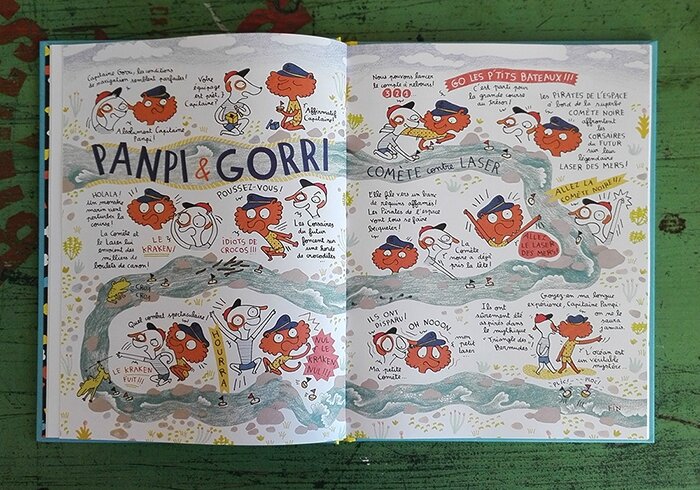 Capitaine Gorri, les conditions
de navigation semblent parfaites!
Absolument Capitaine
Panpi!
Votre
équipage
est prêt,
Capitaine?
Affirmatif
Capitaine!
PANPI & GORRI
VOILALA!
Un monstre
marin vient
perturber la
course!
LE
KRAKEN!
La Comète et
le Laser lui
envoient des
milliers de
boulets de canon!
POUSSEZ-VOUS!
IDIOTS DE
CROCOS!!!
Les Corsaires
du futur
foncent sur
une horde
de crocodiles
CROC
CROC
Quel combat spectaculaire!
LE KRAKEN
FUIT!!!
HOURRA!
NUL
LE
KRAKEN
NUL!!
Nous pouvons lancer
le compte à rebours!
GO LES P'TITS BATEAUX!!!
C'est parti pour
la grande course
au trésor!
LES PIRATES DE L'ESPACE
à bord de la superbe
COMÈTE NOIRE
affrontent
les
CORSAIRES
DU FUTUR
sur leur
légendaire
LASER DES MERS!
COMÈTE contre LASER
ALLEZ LA
COMÈTE NOIRE!!!
Elle file vers un banc
de requins affamés!
Les Pirates de l'espace
vont tous se faire
becqueter!
La
Comète
noire a déjà
pris la tête!
ALLEZ
LE LASER
DES MERS!
ILS ONT
DISPARU!
OH NOOON,
mon
petit
laser
Ma petite
Comète...
Ils ont
sûrement été
aspirés dans
le mythique
Triangle des
Bermudes!
Croyez-en ma longue
expérience, Capitaine Panpi:
on ne
le saura
jamais.
L'océan est
un véritable
mystère
PLIC!
PLOC!
FIN